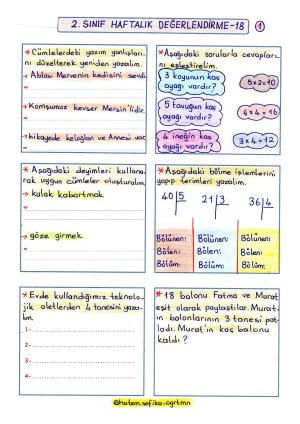 2. SINIF HAFTALIK DEĞERLENDİRME-18
1
*Cümlelerdeki yazım yanlışları-
nı düzelterek yeniden yazalım.
- Ablası Mervenin kedisini sevdi.
- Komşumuz kevser Mersin'lidir.
- hikayede keloğlan ve Annesi var.
*Aşağıdaki sorularla cevapları-
nı eşleştirelim.
3 koyunun kaç
ayağı vardır?
2 tavuğun kaç
ayağı vardır?
4 ineğin kaç
ayağı vardır?
5x2=10
4x4=16
3x4=12
*Aşağıdaki deyimleri kullana-
rak uygun cümleler oluşturalım.
- kulak kabartmak
- göze girmek
*Aşağıdaki bölme işlemlerini
yapıp terimleri yazalım.
40 5 21 3 36 4
Bölünen: Bölünen: Bölünen:
Bölen: Bölen: Bölen:
Bölüm: Bölüm: Bölüm:
*Evde kullandığımız teknolo-
jik aletlerden 4 tanesini yaza-
lım.
1-
2-
3-
4-
*18 balonu Fatma ve Murat
eşit olarak paylaştılar. Murat-
ın balonlarının 3 tanesi pat-
ladı. Murat'ın kaç balonu
kaldı?
@hatem.sefika.ogrtmn